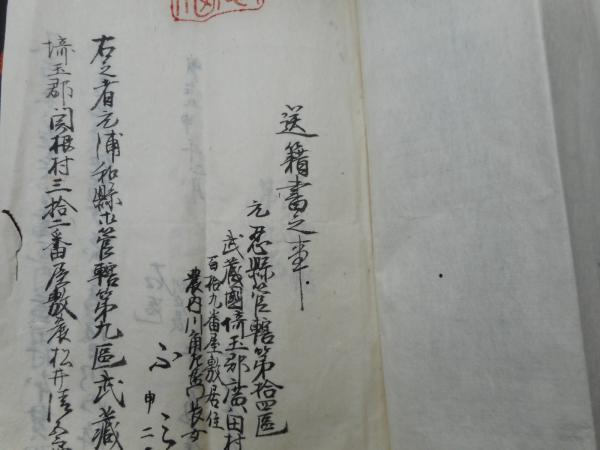 送籍書之事
元忍縣管轄第拾四區
武蔵國埼玉郡廣田村
百拾九番屋敷居住
農内川角左衛門長女
申二
右之者元浦和縣管轄第九區武蔵
埼玉郡関根村三拾二番屋敷農松井清